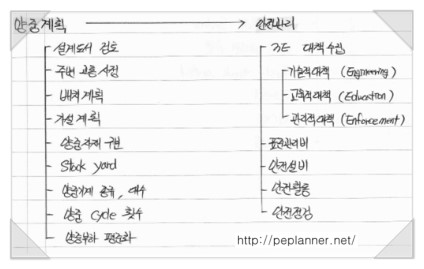 양중계획 → 안전관리
설계도서 검토
주변 교통 사정
배치계획
가설계획
양중자재 구분
Stock yard
양중기계 종류, 대수
양중 cycle 횟수
양중부하 평준화
3E 대책수립
기술적대책 (Engineering)
교육적대책 (Education)
관리적대책 (Enforcement)
표준관리비
안전설비
안전활동
안전점검
http://peplanner.net/